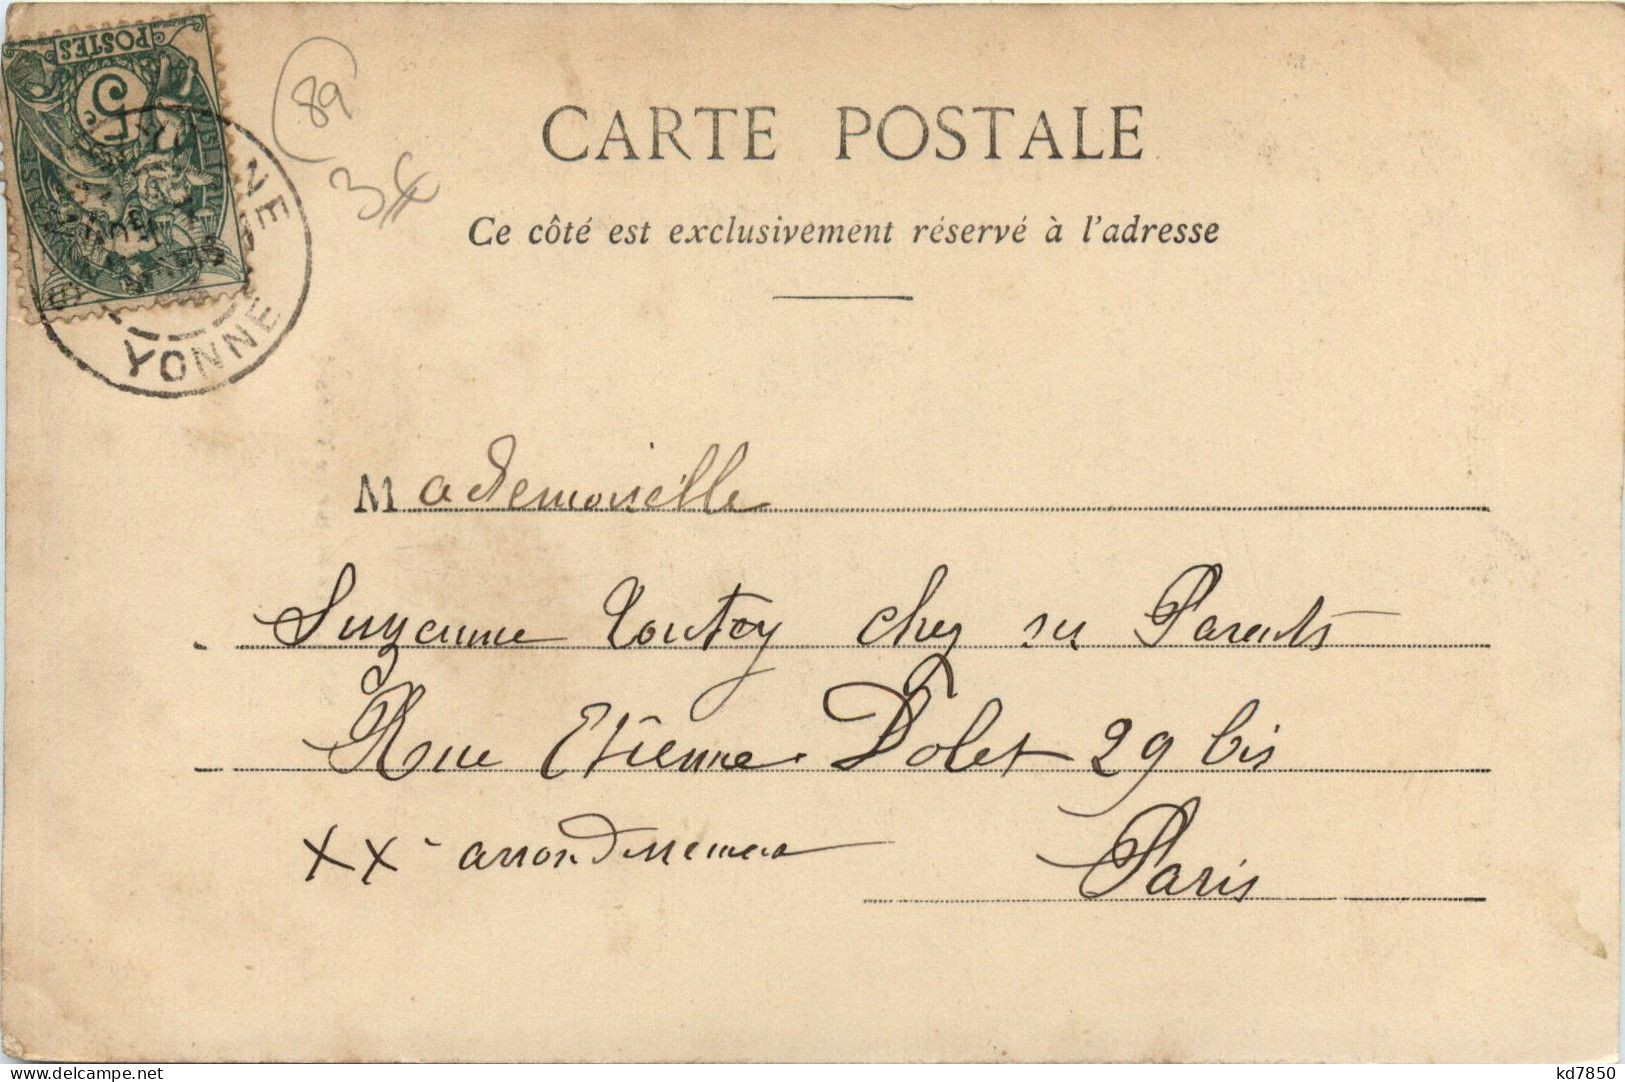 POSTES
5c
(89)
3€
NE
YONNE
CARTE POSTALE
Ce côté est exclusivement réservé à l'adresse
Mademoiselle
Suzanne Toutey chez ses Parents
Rue Etienne Dolet 29 bis
XXe arrondissement Paris
kd7850